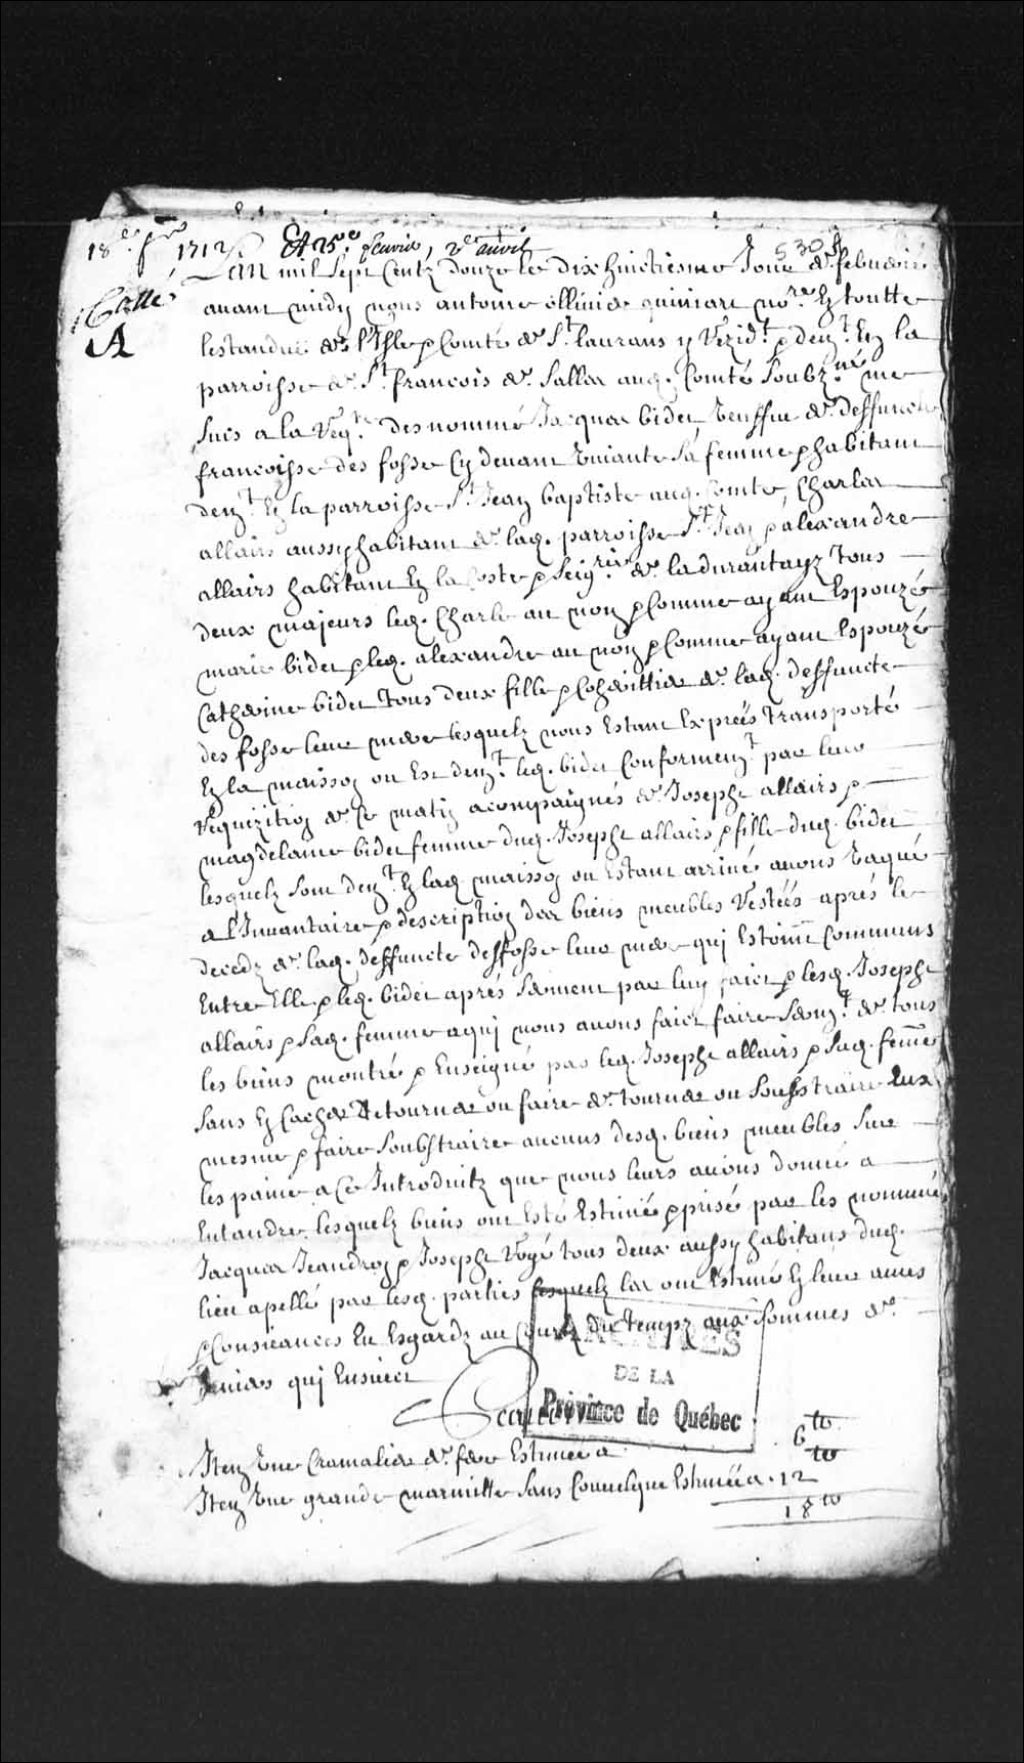 18e. fer 1712 / Et 25e. feuvrie, 2e auvil
530
Lan mil sept Centz douze le dix huictiesme Jour de. febvrier
Cotté
A
auant midy nous antoine ollivier quiniart no.re En toutte
lestandue de. l'Isle & Comté de. St. laurans y Rezidt. & demt. En la
parroisse de. St. francois de. Salles aud. Comté soubz.né me
suis a la Req.te des nommé Jacques bidet veuffue de. deffuncte
francoisse des fosse Cy devant viuante sa femme & habitant
demt. En la parroisse St. Jean baptiste aud. Comté, Charles
allairs aussy habitant de. lad. parroisse St. Jean & alexandre
allairs habitant En la Coste & Seig.rie de. la durantayz Tous
deux majeurs led. Charle au nom & Comme ayant Espouzé
marie bidet & led. alexandre au nom & Comme ayant Espouzé
Catherine bidet Tous deux fille & Coheritties de. lad. deffuncte
des fosse leur mere lesquelz nous Estant Exprés Transporté
En la maisson ou Est demt. led. bidet Conformemt. par leur
Requizition de. Ce matin acompaignés de. Joseph allairs &
magdelaine bidet femme dud. Joseph allairs & fille dud. bidet
lesquelz sont demt. En lad maisson ou Estant arriué auons vaqué
a l'Inuantaire & description des biens meubles Restées aprés le
decedz de. lad. deffuncte desfosse leur mere qui Estoint Communs
Entre Elle & led. bidet aprés serment par luy faict & lesd. Joseph
allairs & sad. femme a qui nous auons faict faire sermt. de. tous
les biens montré & Enseigné par led. Joseph allairs & sad. femme
sans En Cacher detourner ou faire de. tourner ou soubstraire Eux
mesme & faire soubstraire aucuns desd. biens meubles sur
les paine a Ce Introduitz que nous leurs auons donné a
Entandre, lesquelz biens ont Esté Estimé & prisé par les nommé
Jacques Jeandron & Joseph Royé tous deux aussy habitans dud.
lieu apellé par lesd. parties lesquelz les ont Estimé En leur ames
& Consiances En Esgardz au Cours du Temps aux sommes de.
deniers qui Ensuict
ARCHIVES
DE LA
Province de Québec
Item Une Cramalier de. fer Estimée a 6 tt
Item Une grande marmitte sans Couuelque Estimée a. 12 tt
18 tt